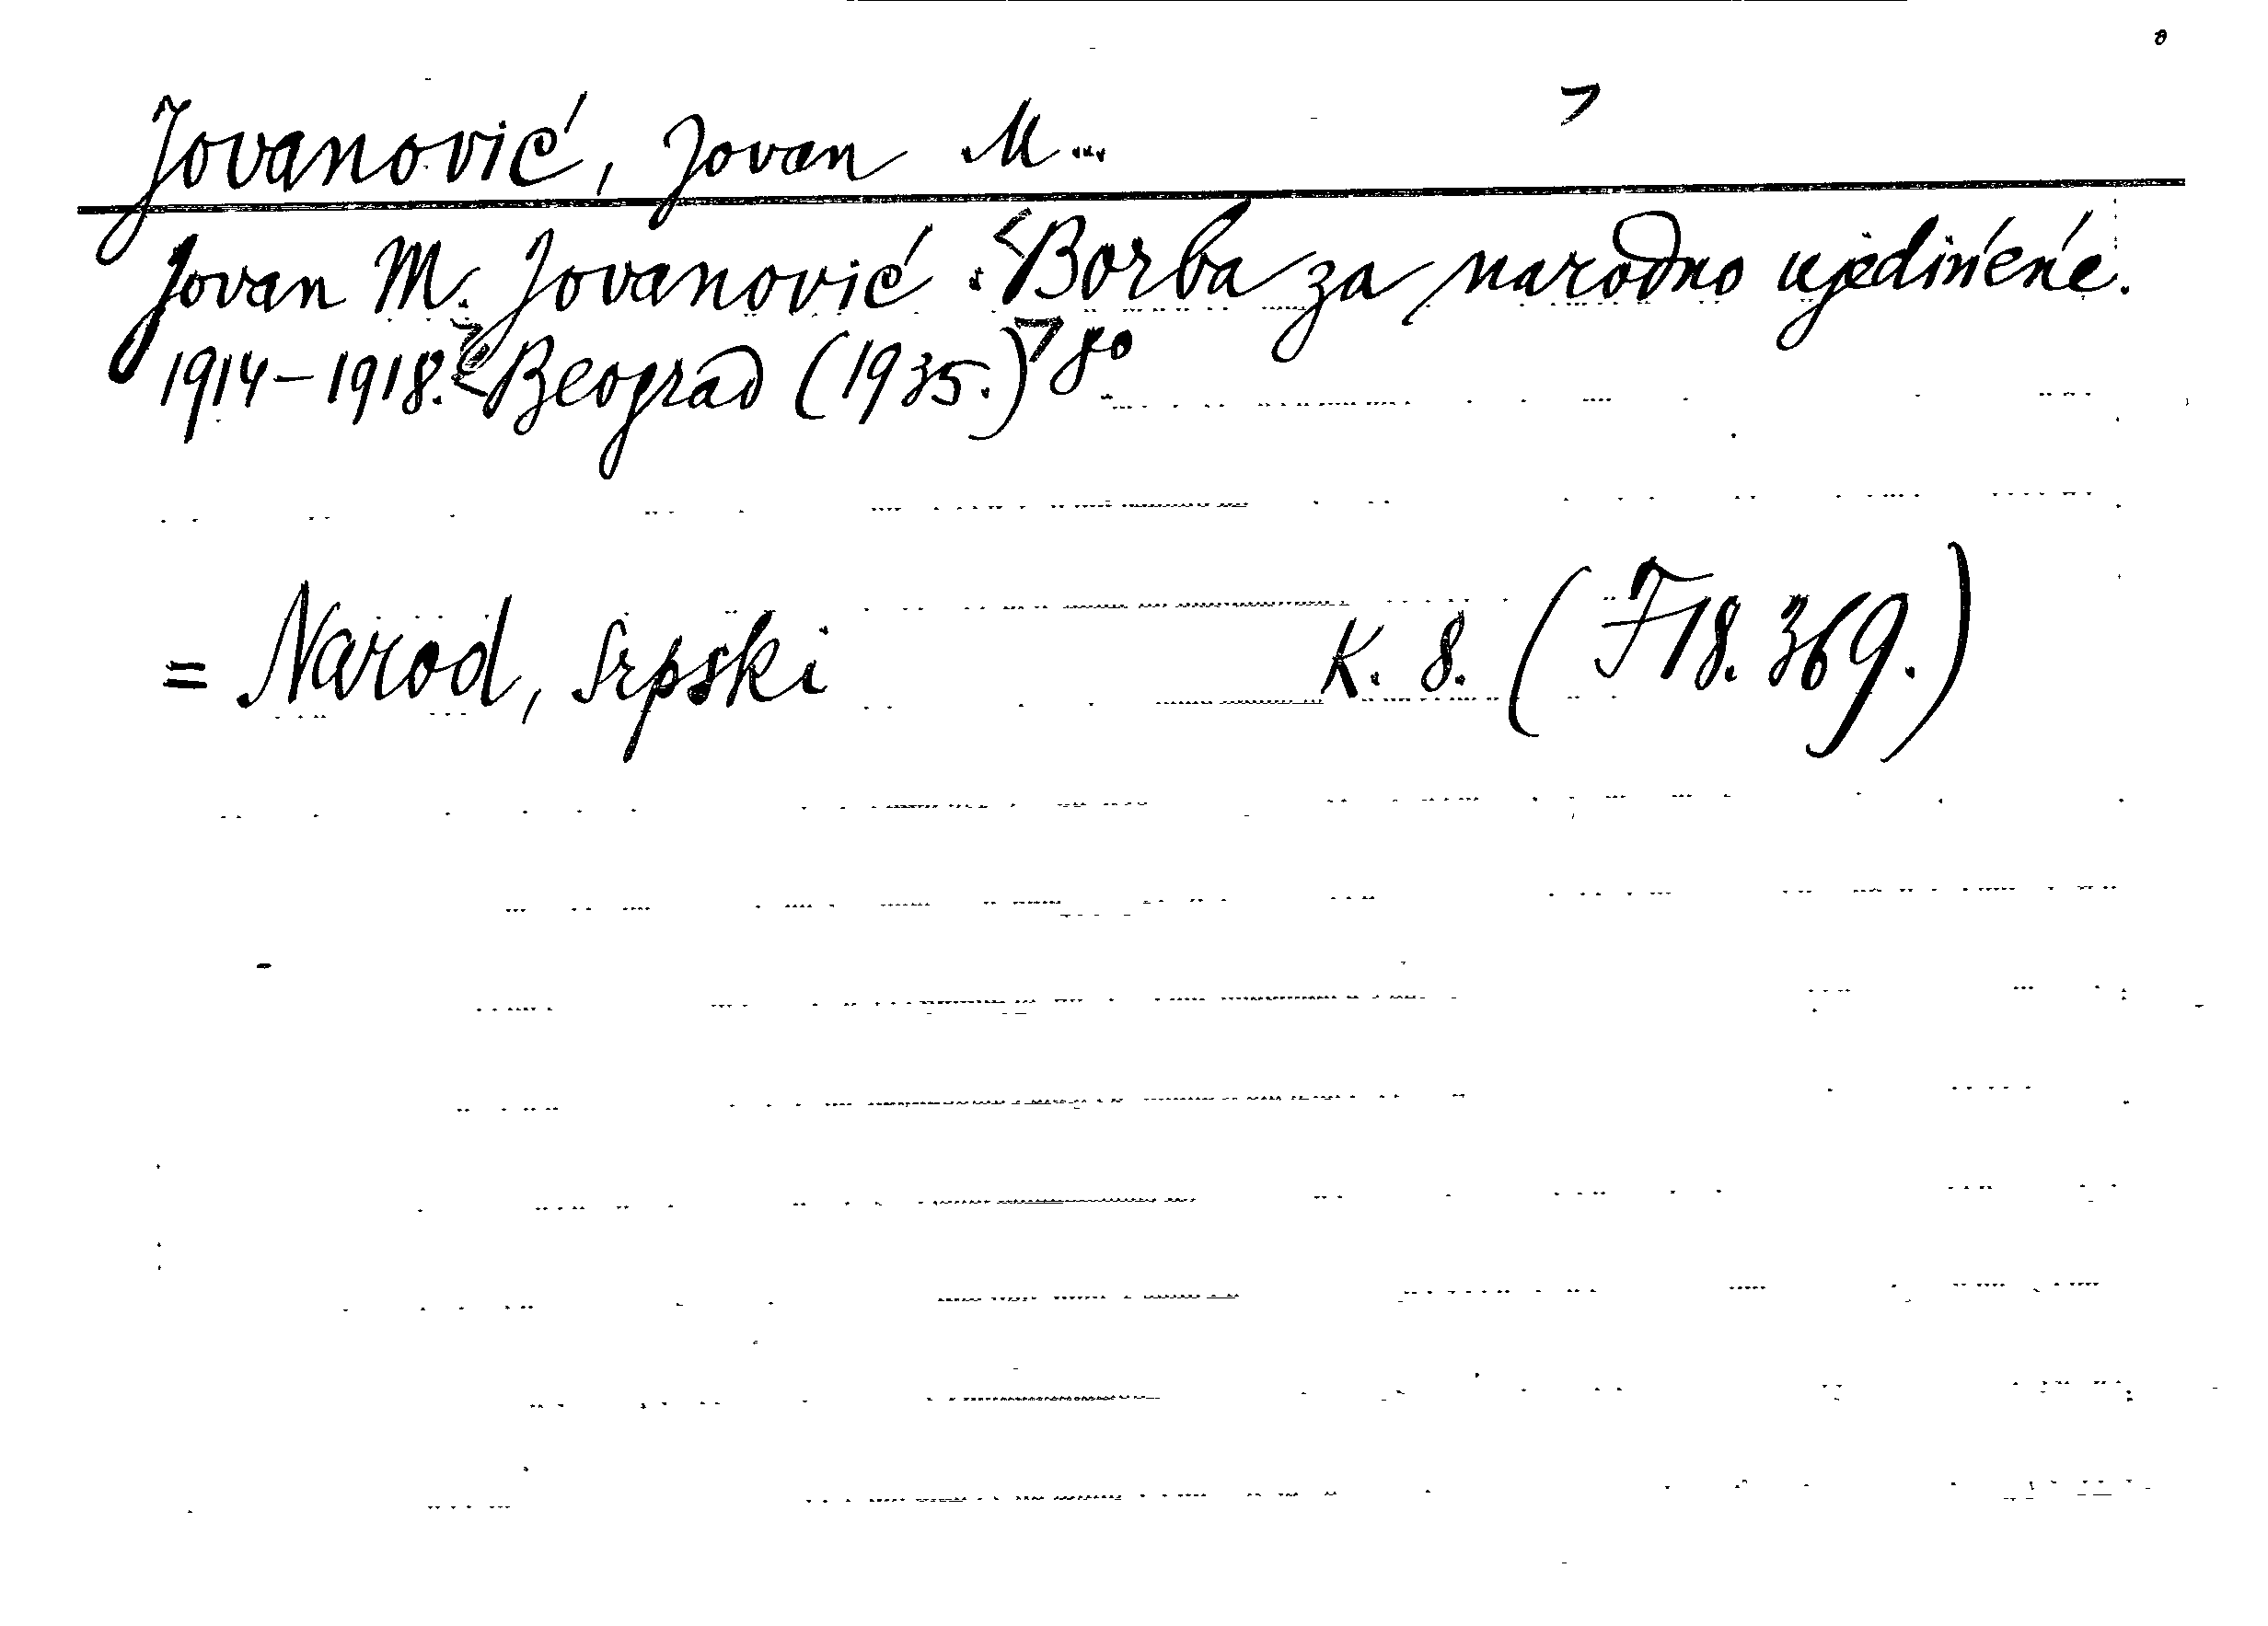 Jovanović, Jovan M...
Jovan M. Jovanović: <Borba za narodno ujedińeńe.
1914–1918.> <Beograd (1935.)> 8°
= Narod, srpski K. 8. (F18.369.)